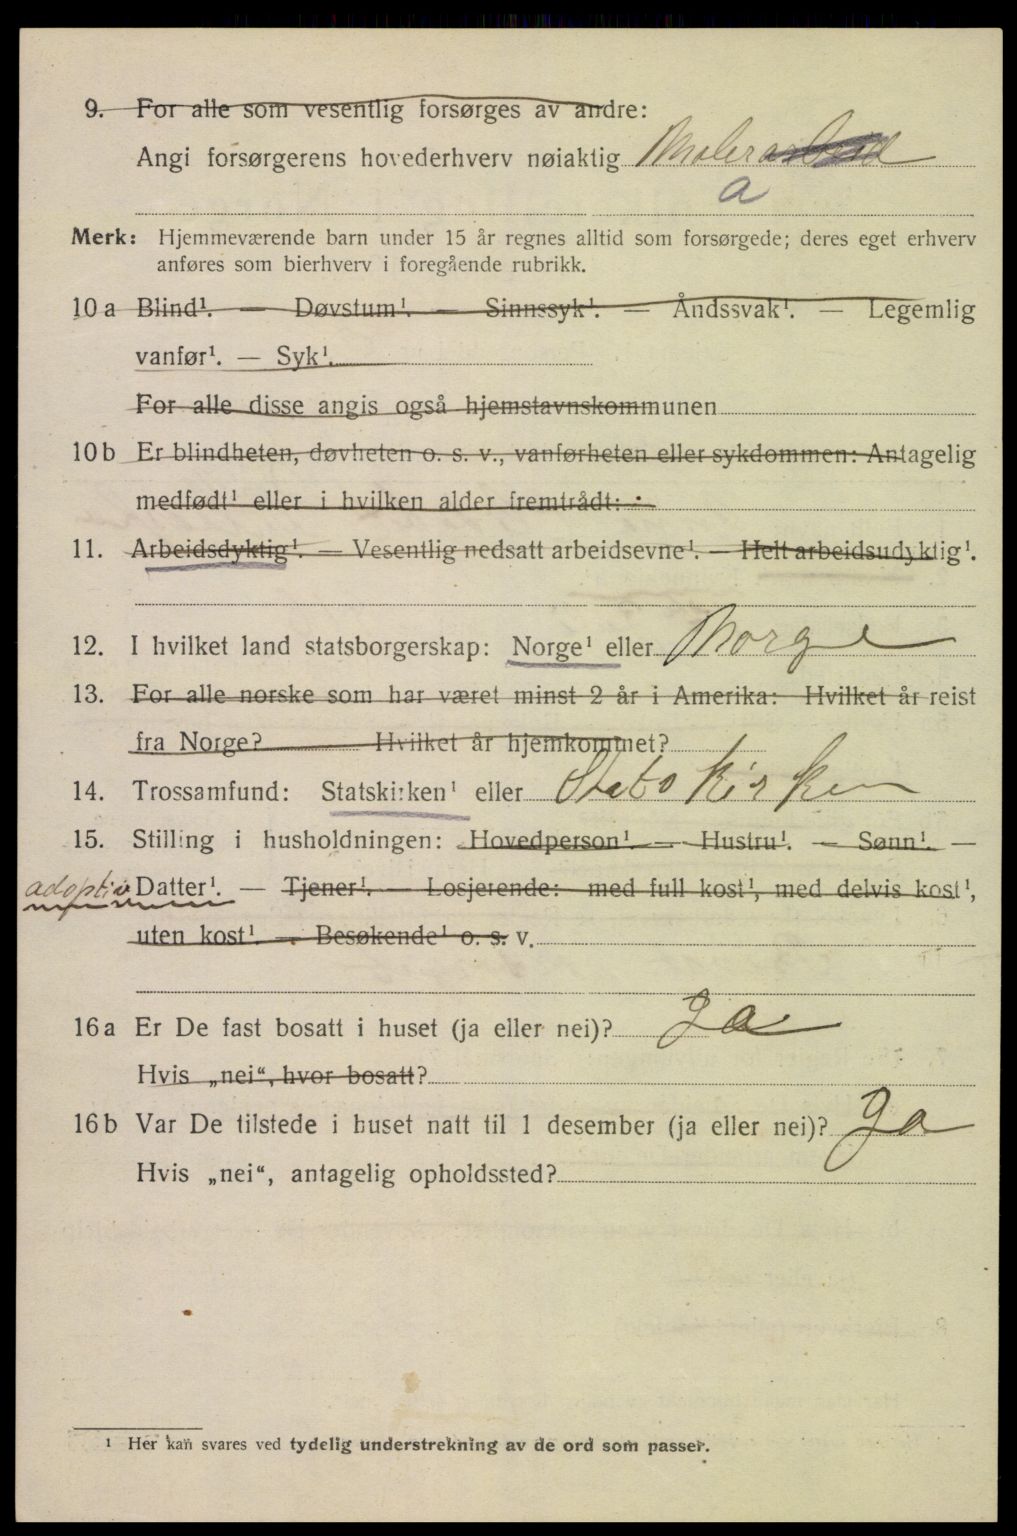 9. For alle som vesentlig forsørges av andre:
Angi forsørgerens hovederhverv nøiaktig Malerarbeid
a
Merk: Hjemmeværende barn under 15 år regnes alltid som forsørgede; deres eget erhverv
anføres som bierhverv i foregående rubrikk.
10a Blind¹. — Døvstum¹. — Sinnssyk¹. — Åndssvak¹. — Legemlig
vanfør¹. — Syk¹.
For alle disse angis også hjemstavnskommunen
10b Er blindheten, døvheten o. s. v., vanførheten eller sykdommen: Antagelig
medfødt¹ eller i hvilken alder fremtrådt:
11. Arbeidsdyktig¹. — Vesentlig nedsatt arbeidsevne¹. — Helt arbeidsudyktig¹.
12. I hvilket land statsborgerskap: Norge¹ eller Norge
13. For alle norske som har været minst 2 år i Amerika: Hvilket år reist
fra Norge? Hvilket år hjemkommet?
14. Trossamfund: Statskirken¹ eller Statskirken
15. Stilling i husholdningen: Hovedperson¹ — Hustru¹. — Sønn¹. —
adoptiv Datter¹. — Tjener¹. — Losjerende: med full kost¹, med delvis kost¹,
uten kost¹. — Besøkende¹ o. s. v.
16a Er De fast bosatt i huset (ja eller nei)? Ja
Hvis „nei“, hvor bosatt?
16b Var De tilstede i huset natt til 1 desember (ja eller nei)? Ja
Hvis „nei“, antagelig opholdssted?
¹ Her kan svares ved tydelig understrekning av de ord som passer.